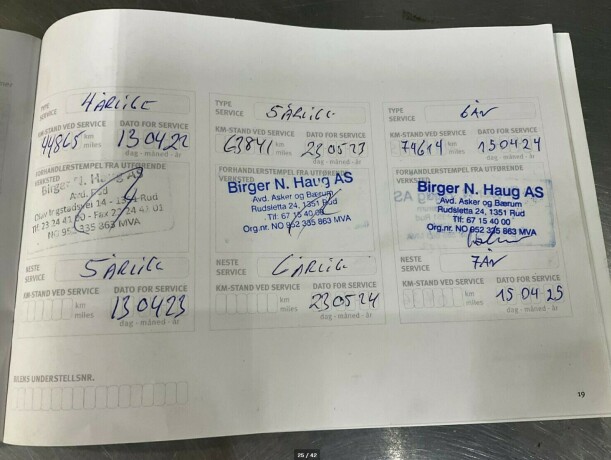 TYPE SERVICE 4 ÅRLIGE
KM-STAND VED SERVICE DATO FOR SERVICE
44865 km miles 13 04 22
dag - måned - år
FORHANDLERSTEMPEL FRA UTFØRENDE VERKSTED
Birger N. Haug AS
Avd. Rud
1351 Rud
NO 952 335 863 MVA
NESTE SERVICE 5 ÅRLIGE
KM-STAND VED SERVICE DATO FOR SERVICE
km miles 13 04 23
dag - måned - år
TYPE SERVICE 5 ÅRLIGE
KM-STAND VED SERVICE DATO FOR SERVICE
63841 km miles 23 05 23
dag - måned - år
FORHANDLERSTEMPEL FRA UTFØRENDE VERKSTED
Birger N. Haug AS
Avd. Asker og Bærum
Rudsletta 24, 1351 Rud
Tlf: 67 15 40 00
Org.nr. NO 952 335 863 MVA
NESTE SERVICE 6 ÅRLIGE
KM-STAND VED SERVICE DATO FOR SERVICE
km miles 23 05 24
dag - måned - år
TYPE SERVICE 6 ÅR
KM-STAND VED SERVICE DATO FOR SERVICE
74614 km miles 15 04 24
dag - måned - år
FORHANDLERSTEMPEL FRA UTFØRENDE VERKSTED
Birger N. Haug AS
Avd. Asker og Bærum
Rudsletta 24, 1351 Rud
Tlf: 67 15 40 00
Org.nr. NO 952 335 863 MVA
NESTE SERVICE 7 ÅR
KM-STAND VED SERVICE DATO FOR SERVICE
km miles 15 04 25
dag - måned - år
UNDERSTELLSNR.
19
25 / 42